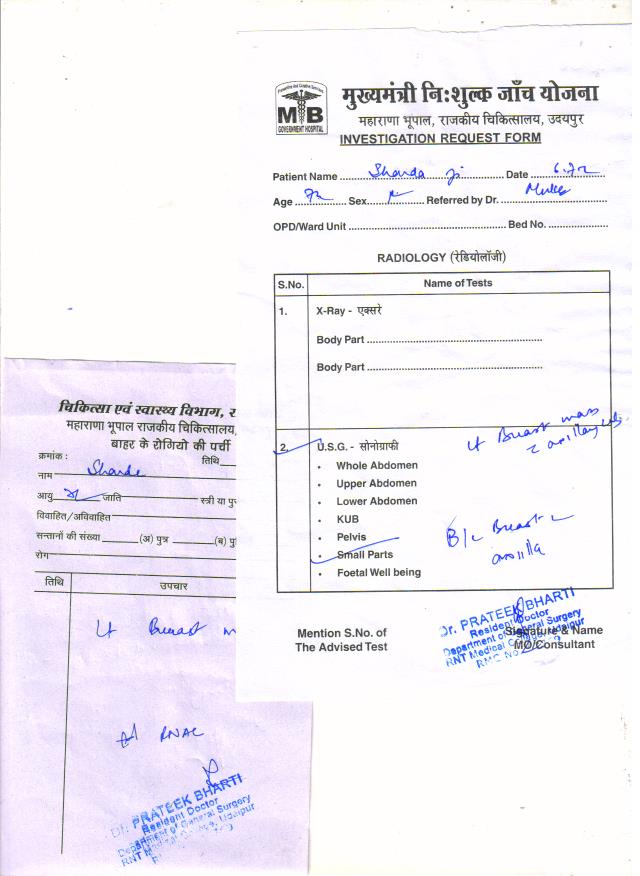 Preventive and Curative Services
MB
GOVERNMENT HOSPITAL
मुख्यमंत्री नि:शुल्क जाँच योजना
महाराणा भूपाल, राजकीय चिकित्सालय, उदयपुर
INVESTIGATION REQUEST FORM
Patient Name Sharda ji Date
Age 72 Sex Referred by Dr.
OPD/Ward Unit Bed No.
RADIOLOGY (रेडियोलॉजी)
S.No. Name of Tests
1. X-Ray - एक्सरे
Body Part
Body Part
2. U.S.G. - सोनोग्राफी
Lt Breast mass
• Whole Abdomen
• Upper Abdomen
• Lower Abdomen
• KUB
• Pelvis
B/L Breast
• Small Parts
axilla
• Foetal Well being
Mention S.No. of
The Advised Test
Signature & Name
MO/Consultant
Dr. PRATEEK BHARTI
Resident Doctor
Department of General Surgery
RNT Medical College, Udaipur
RMC No.
चिकित्सा एवं स्वास्थ्य विभाग,
महाराणा भूपाल राजकीय चिकित्सालय,
बाहर के रोगियो की पर्ची
क्रमांक : तिथि
नाम Sharda
आयु जाति स्त्री या पु
विवाहित/अविवाहित
सन्तानों की संख्या (अ) पुत्र (ब) पु
रोग
तिथि उपचार
Lt Breast m
FNAC
Dr. PRATEEK BHARTI
Resident Doctor
Department of General Surgery
RNT Medical College, Udaipur